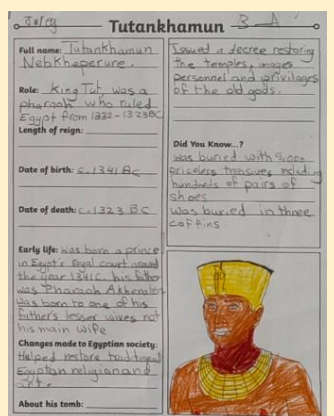 Tutankhamun
Full name: Tutankhamun
Nebkheperure.
Role: King Tut, was a
pharaoh who ruled
Egypt from 1332-1323BC
Length of reign:
Date of birth: c.1341 BC
Date of death: c.1323 BC
Early life: was born a prince
in Egypt's royal court around
the year 1341C. his father
was Pharaoh Akhenaten
was born to one of his
father's lesser wives not
his main wife
Changes made to Egyptian society:
Helped restore traditional
Egyptian religion and
art.
About his tomb:
Issued a decree restoring
the temples, images
personnel and privilages
of the old gods.
Did You Know...?
was buried with 5,000
priceless including
hundreds of pairs of
shoes
was buried in three
coffins.